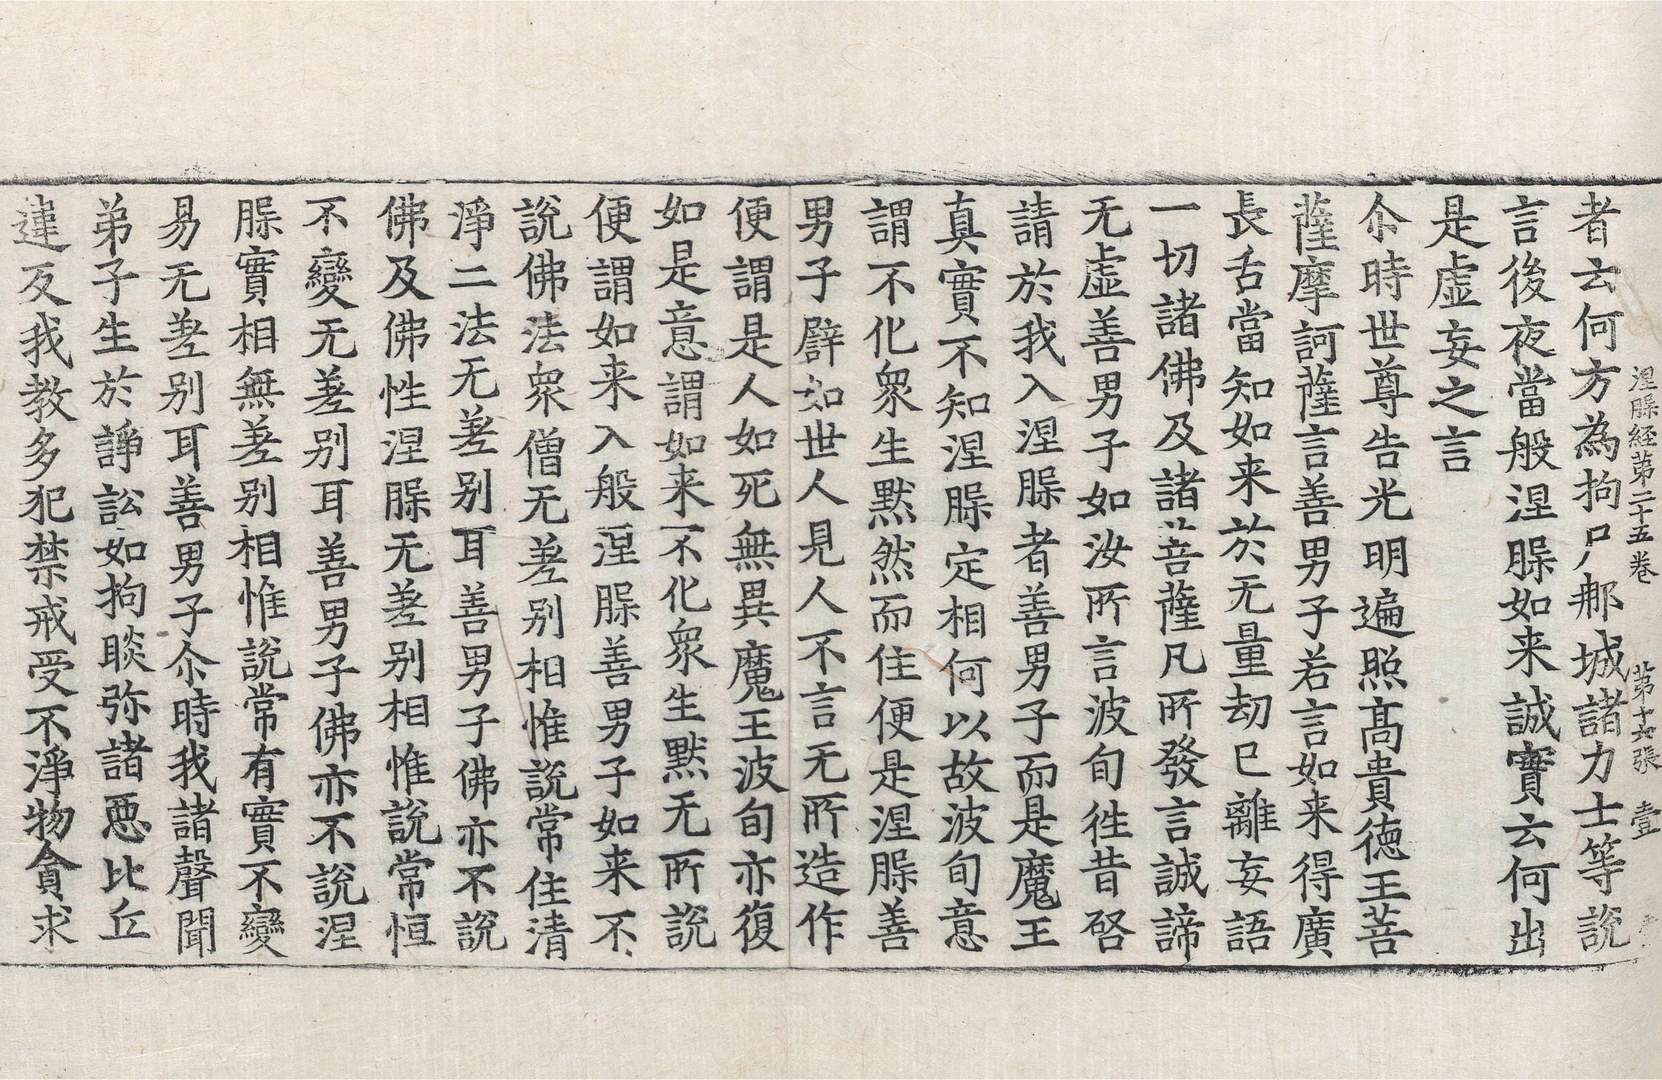 涅槃経第二十五卷 第十六張 壹
者云何方為拘尸那城諸力士等說
言後夜當般涅槃如来誠實云何出
是虛妄之言
尒時世尊告光明遍照髙貴德王菩
薩摩訶薩言善男子若言如来得廣
長舌當知如来於无量劫已離妄語
一切諸佛及諸菩薩凡所發言誠諦
无虛善男子如汝所言波旬徃昔啓
請於我入涅槃者善男子而是魔王
真實不知涅槃定相何以故波旬意
謂不化衆生黙然而住便是涅槃善
男子譬如世人見人不言无所造作
便謂是人如死無異魔王波旬亦復
如是意謂如来不化衆生黙无所說
便謂如来入般涅槃善男子如来不
說佛法衆僧无差别相惟說常住清
淨二法无差别耳善男子佛亦不說
佛及佛性涅槃无差别相惟說常恒
不變无差别耳善男子佛亦不說涅
槃實相無差别相惟說常有實不變
易无差别耳善男子尒時我諸聲聞
弟子生於諍訟如拘睒弥諸惡比丘
違反我教多犯禁戒受不淨物貪求